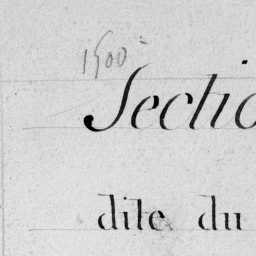 1500
Sectio
dite du